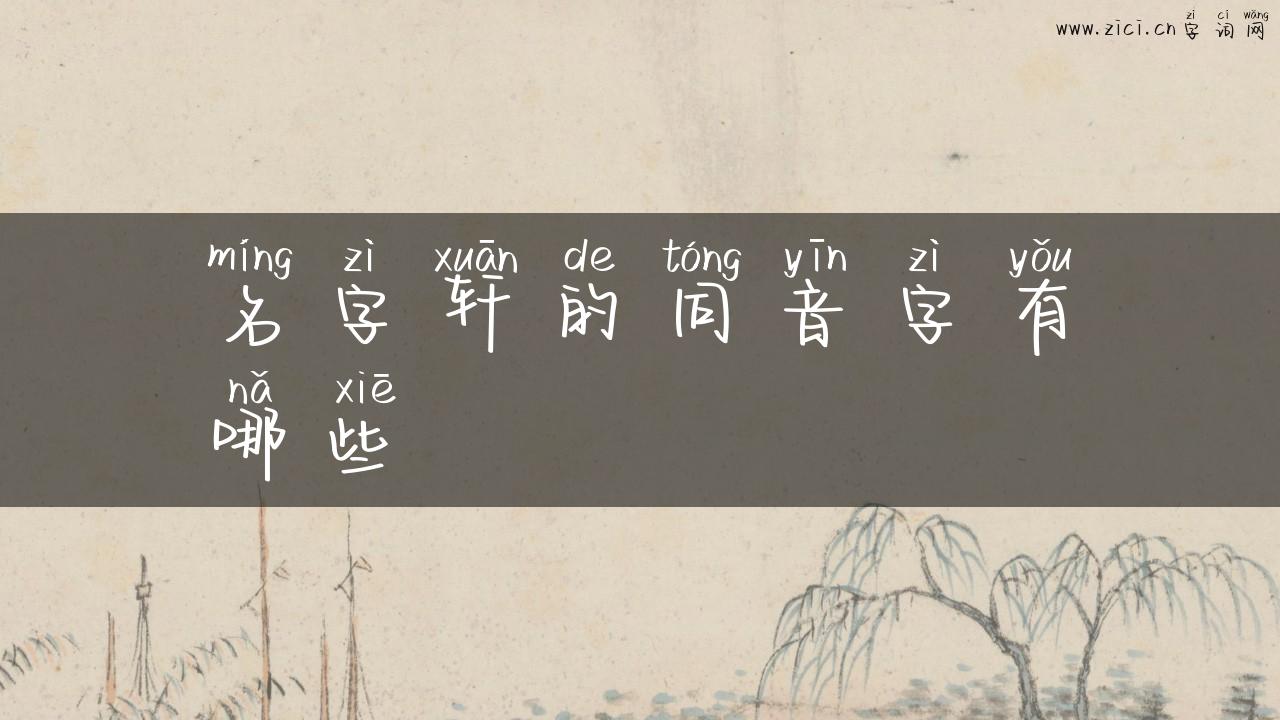 zì cí wǎng
www.zici.cn 字 词 网
míng zì xuān de tóng yīn zì yǒu
名 字 轩 的 同 音 字 有
nǎ xiē
哪 些